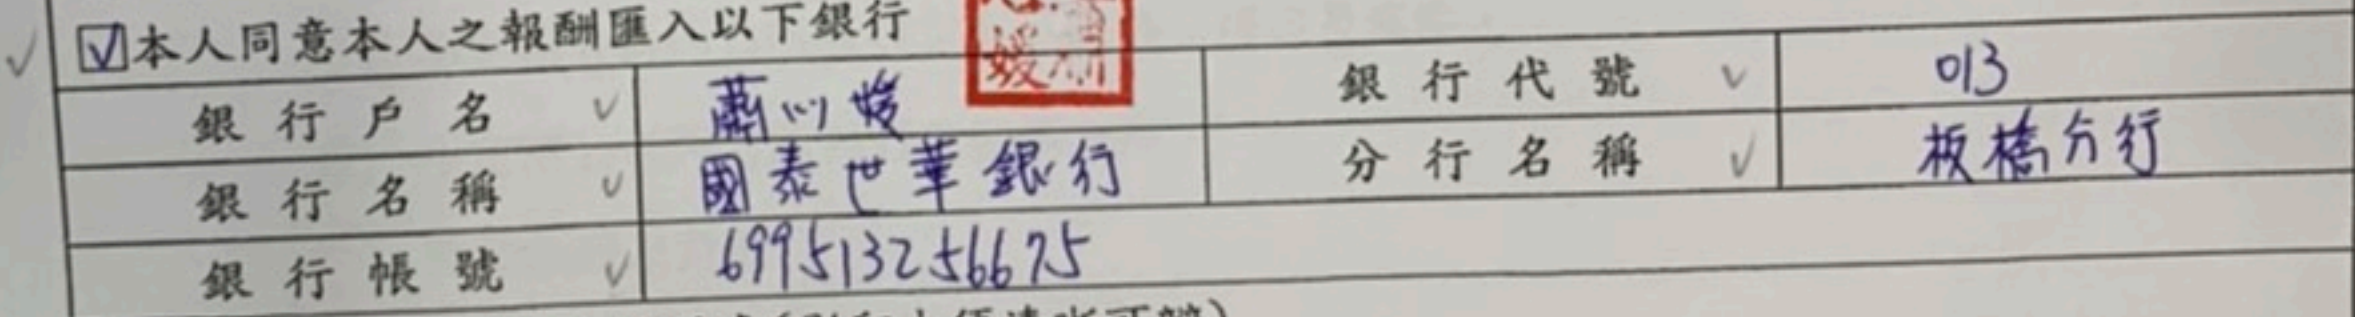 ☑本人同意本人之報酬匯入以下銀行
銀行戶名 蕭 銀行代號 013
銀行名稱 國泰世華銀行 分行名稱 板橋分行
銀行帳號 699513256675